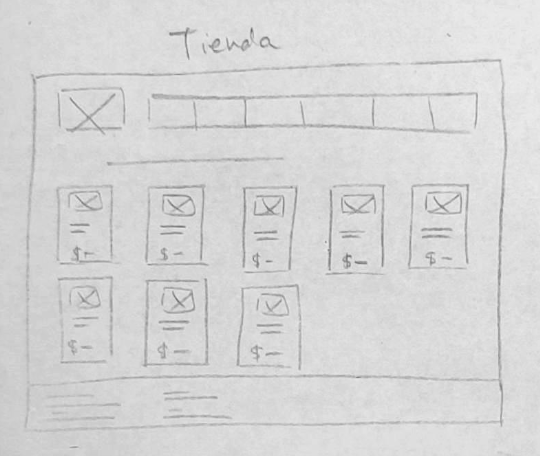 Tienda
$- $- $- $- $-
$- $- $-